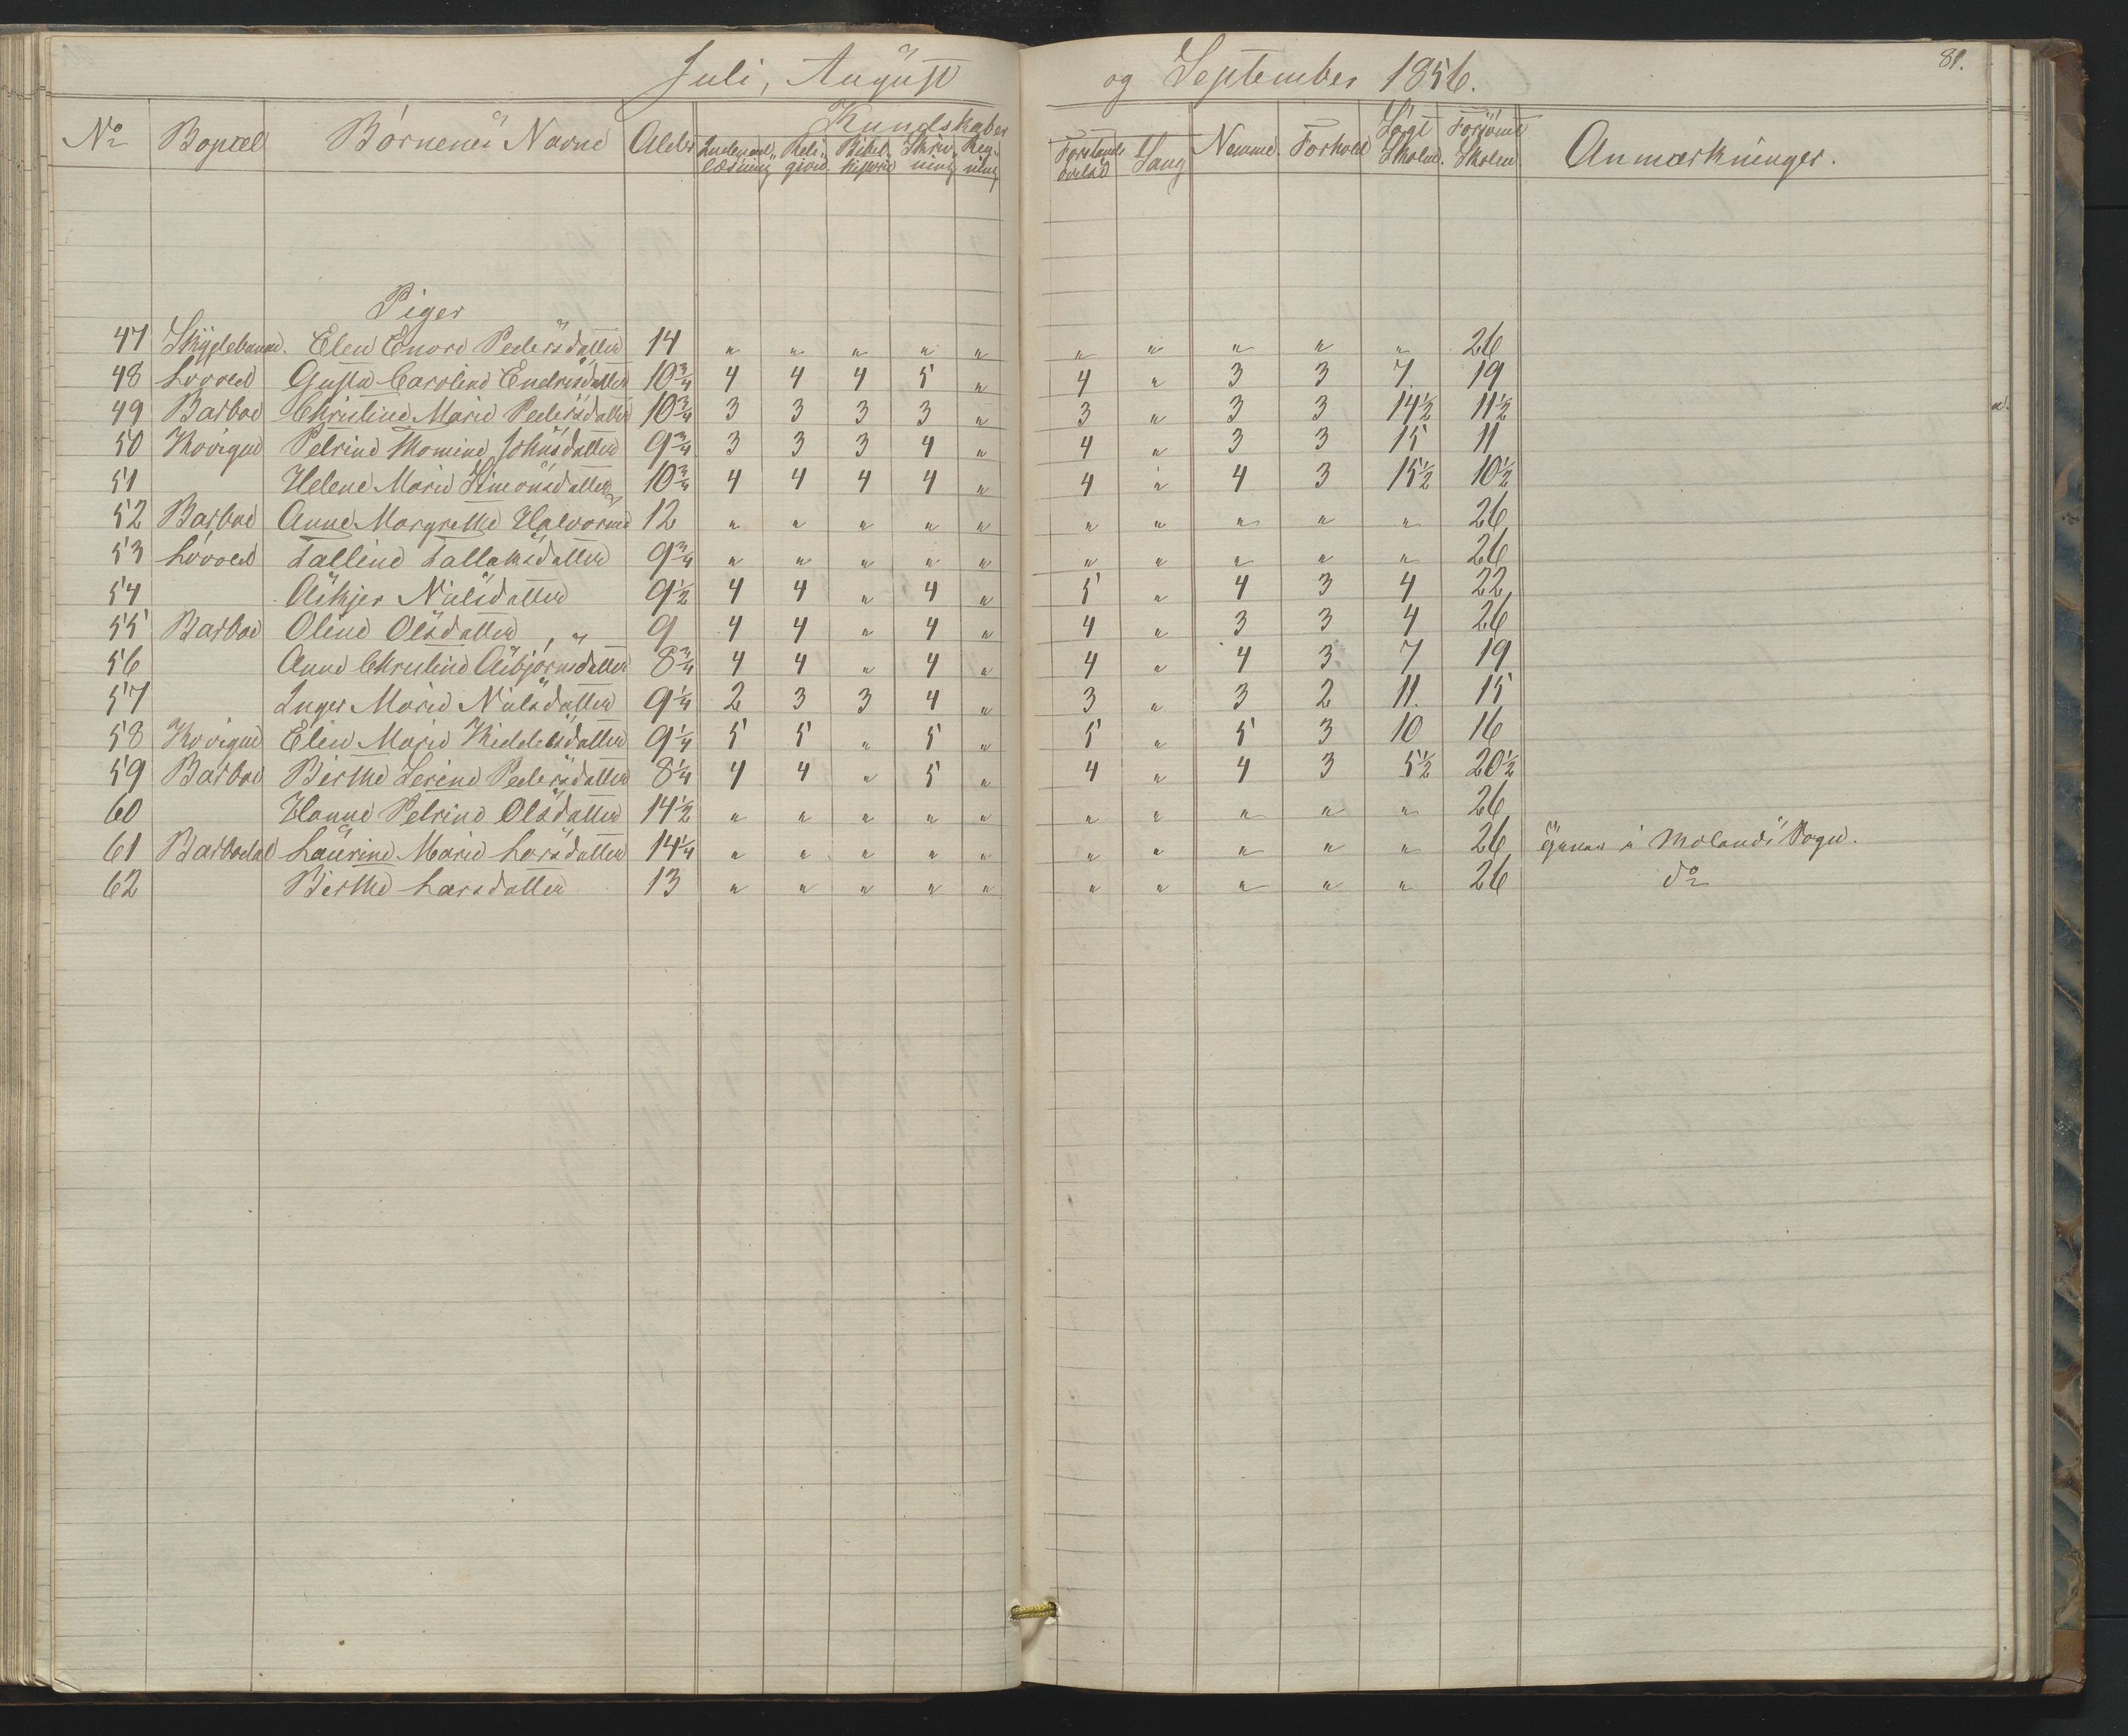 Juli, August og September 1856.
81.
No Bopæl Børnenes Navne Alder Kundskaber Nemme. Forhold Søgt Skolen. Forsømt Skolen Anmærkninger.
Indenadlæsning Religion. Bibelhistorie Skrivning Regning Forstandsøvelse Sang
Piger
47 Elen Pedersdatter 14 " " " " " " " " " " 26
48 Løvold Gusta Caroline Endresdatter 10 3/4 4 4 4 5 " 4 " 3 3 7 19
49 Barboe Christine Marie Pedersdatter 10 3/4 3 3 3 3 " 3 " 3 3 14 1/2 11 1/2
50 Petrine Thomine Johnsdatter 9 3/4 3 3 3 4 " 4 " 3 3 15 11
51 Helene Marie Simonsdatter 10 3/4 4 4 4 4 " 4 " 4 3 15 1/2 10 1/2
52 Barboe Anne Margrethe Halvorsd 12 " " " " " " " " " " 26
53 Løvold Talline Tallaksdatter 9 3/4 " " " " " " " " " " 26
54 Åskjer Nielsdatter 9 1/2 4 4 " 4 " 5 " 4 3 4 22
55 Barboe Oline Olsdatter, " 9 4 4 " 4 " 4 " 3 3 4 26
56 Anne Christine Åsbjørnsdatter 8 3/4 4 4 " 4 " 4 " 4 3 7 19
57 Inger Marie Nielsdatter 9 1/4 2 3 3 4 " 3 " 3 2 11. 15
58 Elen Marie Kiddelsdatter 9 1/4 5 5 " 5 " 5 " 5 3 10 16
59 Barboe Birthe Serine Pedersdatter 8 1/4 4 4 " 5 " 4 " 4 3 5 1/2 20 1/2
60 Hanne Petrine Olsdatter 14 1/2 " " " " " " " " " " 26
61 Barbodal Laurine Marie Larsdatter 14 1/4 " " " " " " " " " " 26 i Molands Sogn.
62 Birthe Larsdatter 13 " " " " " " " " " " 26 do